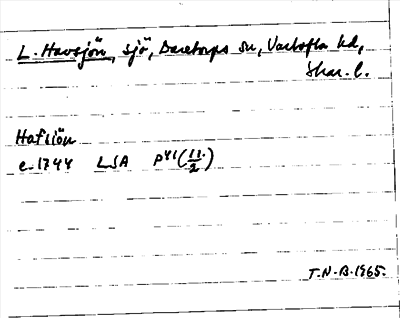 L. Havsjön, sjö, Daretorps sn, Vartofta hd,
Skar. l.
Hafsiön
c. 1744 LSA P41(11/2)
T.N.B. 1965.